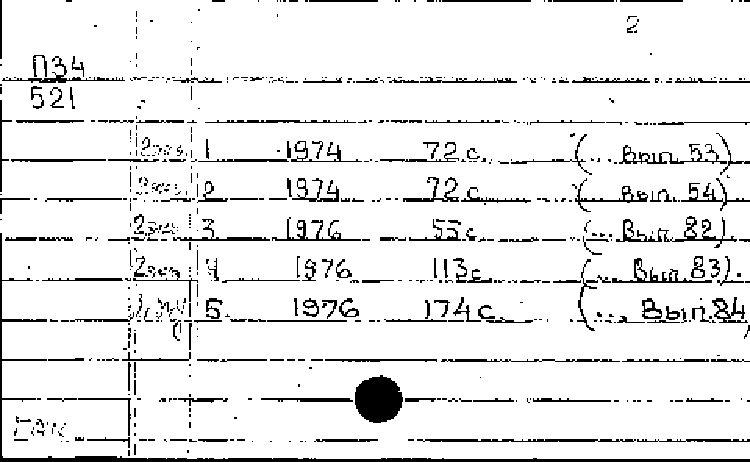 2
П34
521
2экз 1 1974 72 с. (... Вып. 53)
2экз. 2 1974 72 с. (... Вып. 54)
2экз 3 1976 55 с (... Вып. 82).
2экз 4 1976 113 с (... Вып. 83).
5 1976 174 с. (... Вып. 84